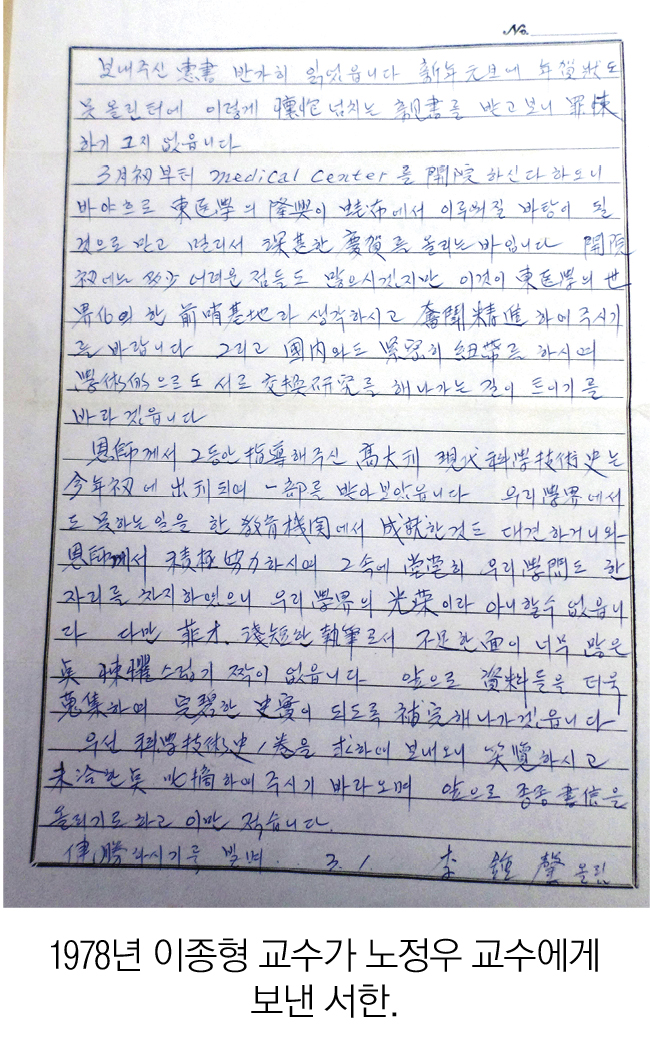 No.
보내주신 惠書 반가히 읽었읍니다 新年元旦에 年賀狀도
못올린터에 이렇게 懷抱 넘치는 親書를 받고보니 罪悚
하기 그지 없읍니다
3月初부터 medical center를 開院 하신다 하오니
바야흐로 東医學의 隆興이 에서 이루어질 바탕이 될
것으로 믿고 멀리서 深甚한 慶賀를 올리는 바입니다 開院
初에는 多少 어려운 점들도 많으시겠지만 이것이 東医學의 世
界化의 한 前哨基地라 생각하시고 奮鬪精進 하여주시기
를 바랍니다 그리고 國內와도 緊密히 紐帶를 하시며
學術的으로도 서로 交換硏究를 해나가는 길이 트이기를
바라겠읍니다
恩師께서 그동안 指導해주신 高大刊 現代科學技術史는
今年初에 出刊되여 一部를 받아보았읍니다 우리 學界에서
도 못하는 일을 한 敎育機関에서 成就한것도 대견하거니와
恩師께서 積極協力하시여 그속에 堂堂히 우리學問도 한
자리를 차지하였으니 우리 學界의 光榮이라 아니할수 없읍니
다 다만 菲才, 淺短한 執筆로서 不足한 面이 너무 많은
点 悚懼스럽기 짝이 없읍니다 앞으로 資料들을 더욱
蒐集하여 完璧한 史實이 되도록 補完해 나가겠읍니다
우선 科學技術史 1卷을 求하여 보내오니 笑覽하시고
未洽한 点 指摘하여 주시기 바라오며 앞으로 종종 書信을
올리기로 하고 이만 적습니다.
健勝하시기를 빌며.. 3. 1. 李鍾馨 올림
1978년 이종형 교수가 노정우 교수에게
보낸 서한.